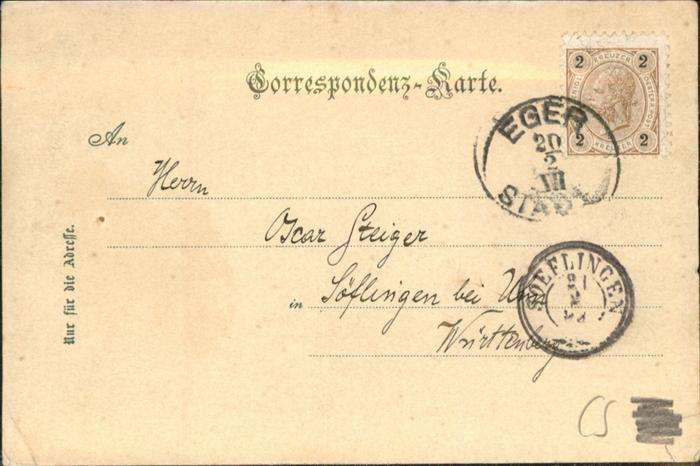 Correspondenz-Karte.
2 KREUZER 2
2 KREUZER 2
EGER
20
2
III
STADT
An
Herrn
Oscar Steiger
in Söflingen bei Ulm
Württemberg
SOEFLINGEN
21
2
Nur für die Adresse.
CS